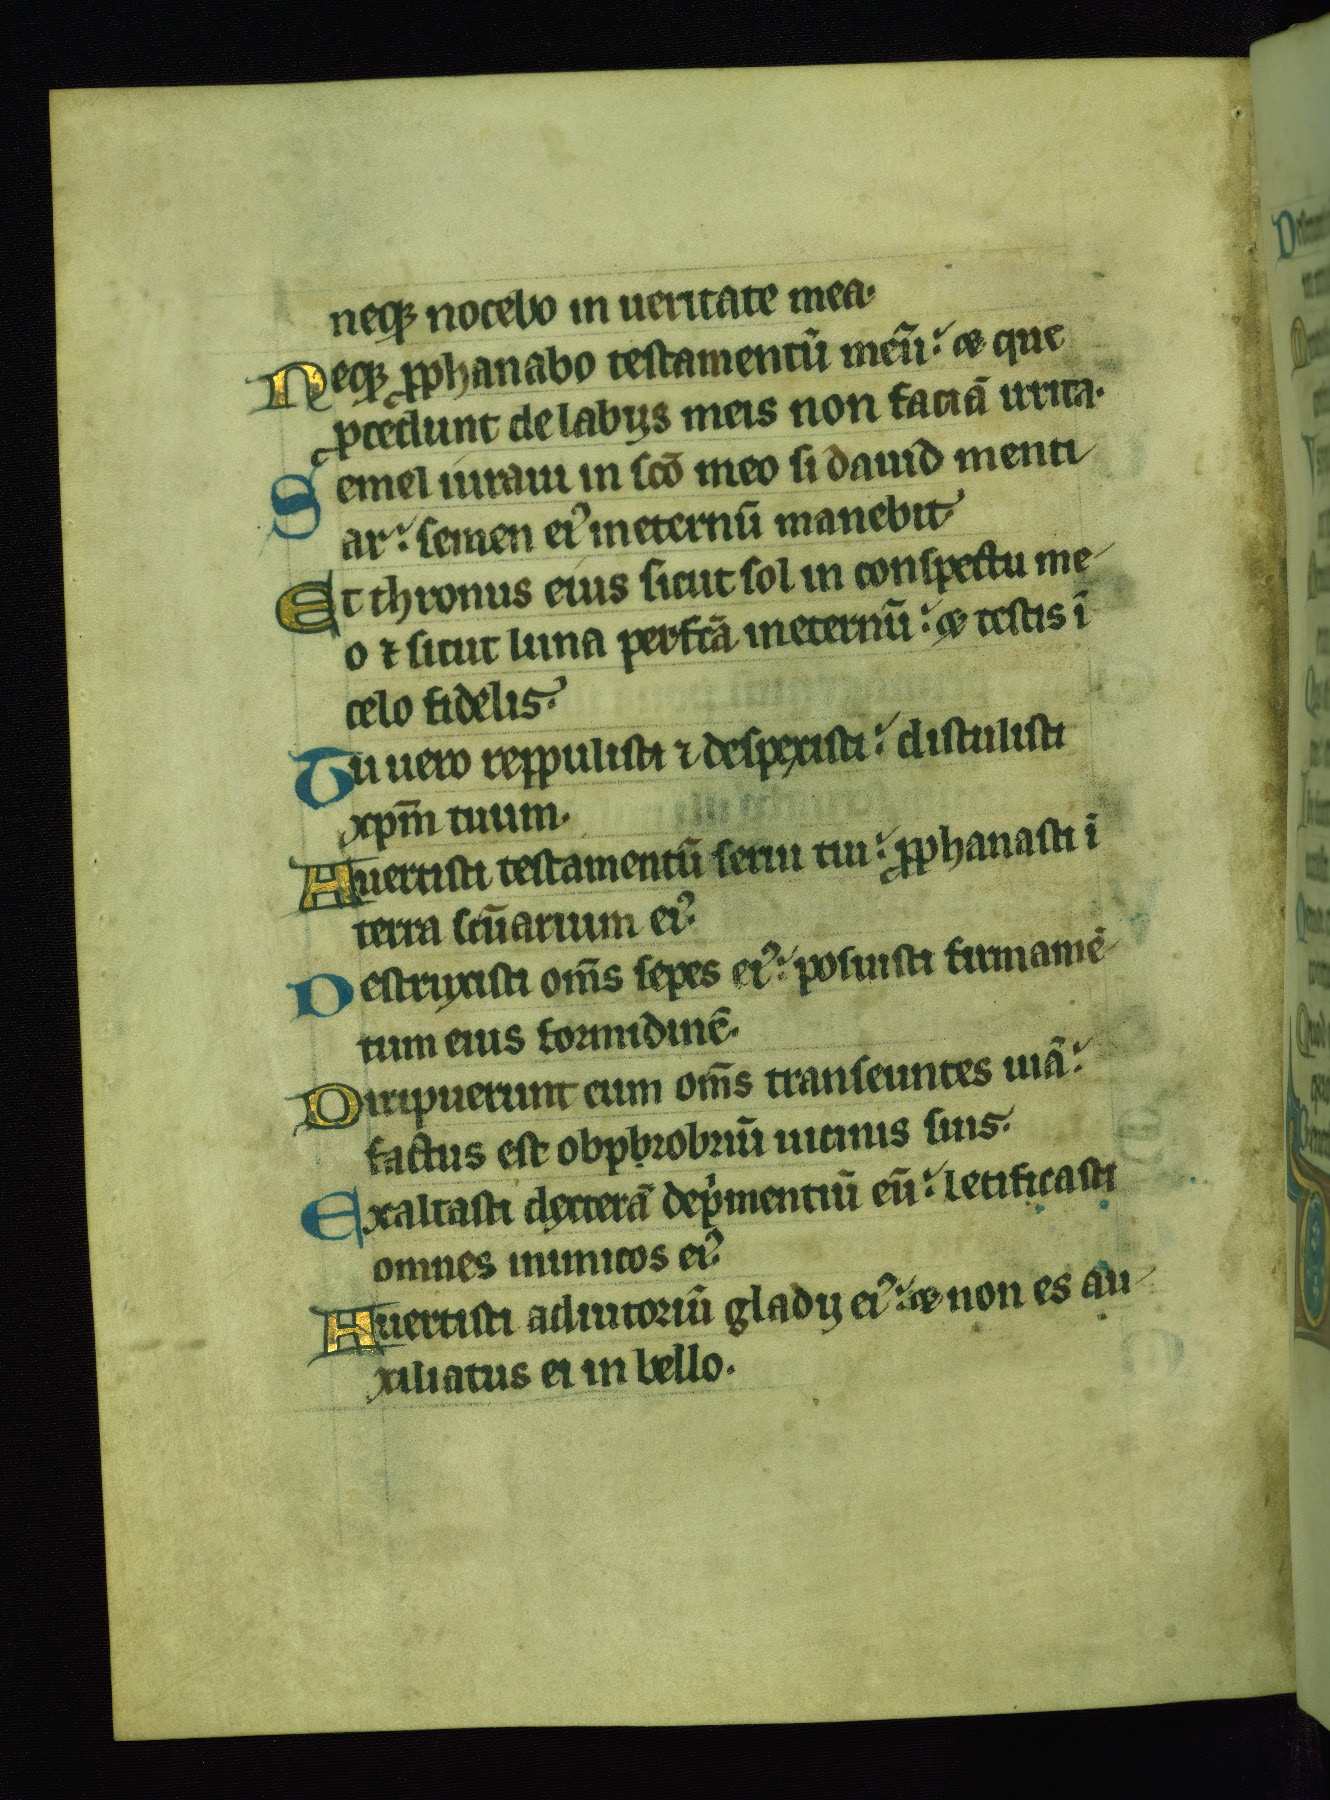 neqꝫ nocebo in ueritate mea.
Neqꝫ ꝓphanabo testamentū meū: ⁊ que
ꝓcedunt de labijs meis non faciā irrita.
Semel iuraui in sc̄o meo si dauid menti
ar: semen eiꝰ ineternū manebit.
Et thronus eius sicut sol in conspectu me
o ⁊ sicut luna perfc̄ā ineternū: ⁊ testis ī
celo fidelis.
Tu uero reppulisti ⁊ despexisti: distulisti
xpm̄ tuum.
Auertisti testamentū serui tui: ꝓphanasti ī
terra sc̄uarium eiꝰ.
Destruxisti om̄s sepes eiꝰ: posuisti firmamē
tum eius formidinē.
Diripuerunt eum om̄s transeuntes uiā:
factus est obpbrobriū uicinis suis.
Exaltasti dexterā dep̍mentiū eū: letificasti
omnes inimicos eiꝰ.
Auertisti adiutoriū gladij eiꝰ: ⁊ non es au
xiliatus ei in bello.